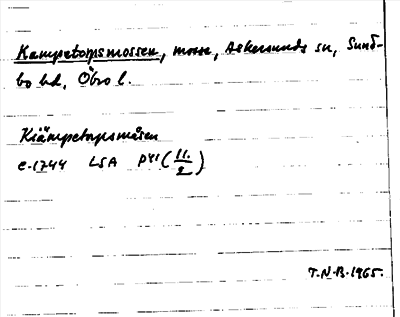 Kampetorpsmossen, mosse, Askersunds sn, Sund-
bo hd, Öbro l.
Kiämpetorpsmåsen
c. 1744 LSA P41 (11./2)
T.N.B. 1965.